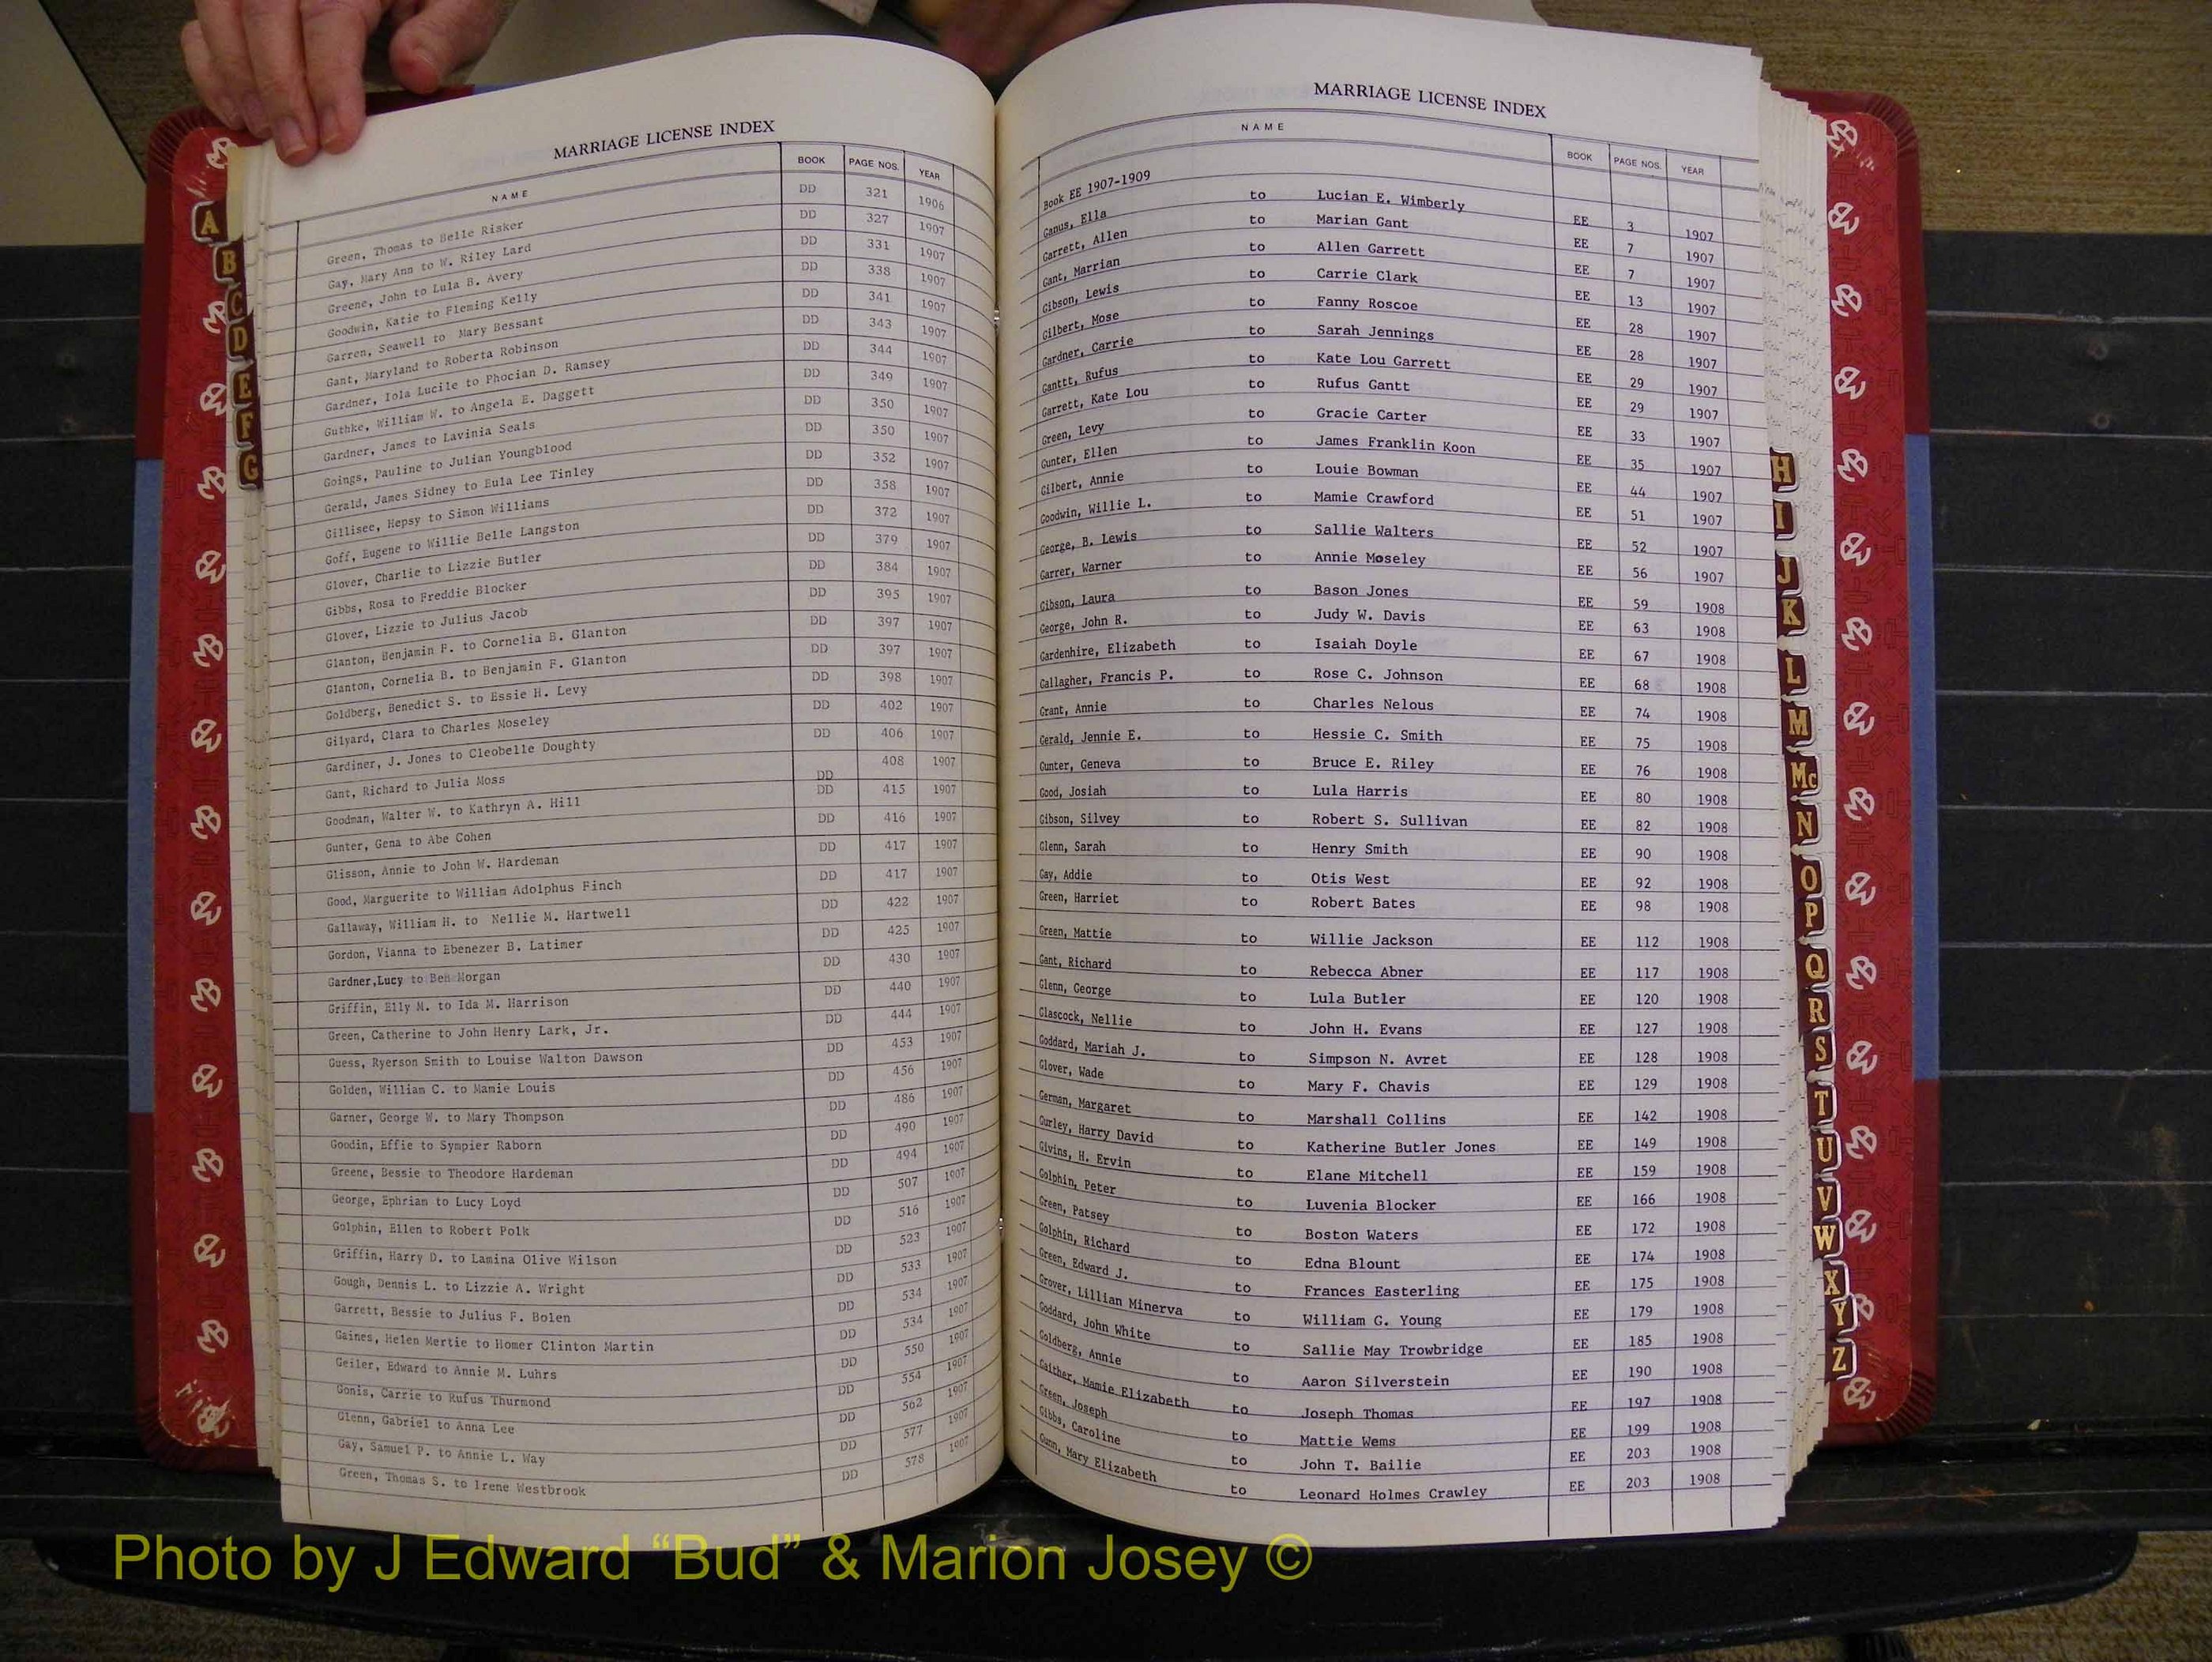 MARRIAGE LICENSE INDEX
NAME BOOK PAGE NOS. YEAR
Green, Thomas to Belle Risker DD 321 1906
Gay, Mary Ann to W. Riley Lard DD 327 1907
Greene, John to Lula B. Avery DD 331 1907
Goodwin, Katie to Fleming Kelly DD 338 1907
Garren, Seawell to Mary Bessant DD 341 1907
Gant, Maryland to Roberta Robinson DD 343 1907
Gardner, Iola Lucile to Phocian D. Ramsey DD 344 1907
Guthke, William W. to Angela E. Daggett DD 349 1907
Gardner, James to Lavinia Seals DD 350 1907
Goings, Pauline to Julian Youngblood DD 350 1907
Gerald, James Sidney to Eula Lee Tinley DD 352 1907
Gillisee, Hepsy to Simon Williams DD 358 1907
Goff, Eugene to Willie Belle Langston DD 372 1907
Glover, Charlie to Lizzie Butler DD 379 1907
Gibbs, Rosa to Freddie Blocker DD 384 1907
Glover, Lizzie to Julius Jacob DD 395 1907
Glanton, Benjamin F. to Cornelia B. Glanton DD 397 1907
Glanton, Cornelia B. to Benjamin F. Glanton DD 397 1907
Goldberg, Benedict S. to Essie H. Levy DD 398 1907
Gilyard, Clara to Charles Moseley DD 402 1907
Gardiner, J. Jones to Cleobelle Doughty DD 406 1907
Gant, Richard to Julia Moss DD 408 1907
Goodman, Walter W. to Kathryn A. Hill DD 415 1907
Gunter, Gena to Abe Cohen DD 416 1907
Glisson, Annie to John W. Hardeman DD 417 1907
Good, Marguerite to William Adolphus Finch DD 417 1907
Gallaway, William H. to Nellie M. Hartwell DD 422 1907
Gordon, Vianna to Ebenezer B. Latimer DD 425 1907
Gardner,Lucy to Ben Morgan DD 430 1907
Griffin, Elly M. to Ida M. Harrison DD 440 1907
Green, Catherine to John Henry Lark, Jr. DD 444 1907
Guess, Ryerson Smith to Louise Walton Dawson DD 453 1907
Golden, William C. to Mamie Louis DD 456 1907
Garner, George W. to Mary Thompson DD 486 1907
Goodin, Effie to Sympier Raborn DD 490 1907
Greene, Bessie to Theodore Hardeman DD 494 1907
George, Ephrian to Lucy Loyd DD 507 1907
Golphin, Ellen to Robert Polk DD 516 1907
Griffin, Harry D. to Lamina Olive Wilson DD 523 1907
Gough, Dennis L. to Lizzie A. Wright DD 533 1907
Garrett, Bessie to Julius F. Bolen DD 534 1907
Gaines, Helen Mertie to Homer Clinton Martin DD 534 1907
Geiler, Edward to Annie M. Luhrs DD 550 1907
Gonis, Carrie to Rufus Thurmond DD 554 1907
Glenn, Gabriel to Anna Lee DD 562 1907
Gay, Samuel P. to Annie L. Way DD 577 1907
Green, Thomas S. to Irene Westbrook DD 578 1907
MARRIAGE LICENSE INDEX
NAME BOOK PAGE NOS. YEAR
Book EE 1907-1909
Ganus, Ella to Lucian E. Wimberly EE 3 1907
Garrett, Allen to Marian Gant EE 7 1907
Gant, Marrian to Allen Garrett EE 7 1907
Gibson, Lewis to Carrie Clark EE 13 1907
Gilbert, Mose to Fanny Roscoe EE 28 1907
Gardner, Carrie to Sarah Jennings EE 28 1907
Ganttt, Rufus to Kate Lou Garrett EE 29 1907
Garrett, Kate Lou to Rufus Gantt EE 29 1907
Green, Levy to Gracie Carter EE 33 1907
Gunter, Ellen to James Franklin Koon EE 35 1907
Gilbert, Annie to Louie Bowman EE 44 1907
Goodwin, Willie L. to Mamie Crawford EE 51 1907
George, B. Lewis to Sallie Walters EE 52 1907
Garrer, Warner to Annie Moseley EE 56 1907
Gibson, Laura to Bason Jones EE 59 1908
George, John R. to Judy W. Davis EE 63 1908
Gardenhire, Elizabeth to Isaiah Doyle EE 67 1908
Gallagher, Francis P. to Rose C. Johnson EE 68 1908
Grant, Annie to Charles Nelous EE 74 1908
Gerald, Jennie E. to Hessie C. Smith EE 75 1908
Gunter, Geneva to Bruce E. Riley EE 76 1908
Good, Josiah to Lula Harris EE 80 1908
Gibson, Silvey to Robert S. Sullivan EE 82 1908
Glenn, Sarah to Henry Smith EE 90 1908
Gay, Addie to Otis West EE 92 1908
Green, Harriet to Robert Bates EE 98 1908
Green, Mattie to Willie Jackson EE 112 1908
Gant, Richard to Rebecca Abner EE 117 1908
Glenn, George to Lula Butler EE 120 1908
Glascock, Nellie to John H. Evans EE 127 1908
Goddard, Mariah J. to Simpson N. Avret EE 128 1908
Glover, Wade to Mary F. Chavis EE 129 1908
German, Margaret to Marshall Collins EE 142 1908
Gurley, Harry David to Katherine Butler Jones EE 149 1908
Givins, H. Ervin to Elane Mitchell EE 159 1908
Golphin, Peter to Luvenia Blocker EE 166 1908
Green, Patsey to Boston Waters EE 172 1908
Golphin, Richard to Edna Blount EE 174 1908
Green, Edward J. to Frances Easterling EE 175 1908
Grover, Lillian Minerva to William G. Young EE 179 1908
Goddard, John White to Sallie May Trowbridge EE 185 1908
Goldberg, Annie to Aaron Silverstein EE 190 1908
Gaither, Mamie Elizabeth to Joseph Thomas EE 197 1908
Green, Joseph to Mattie Wems EE 199 1908
Gibbs, Caroline to John T. Bailie EE 203 1908
Gunn, Mary Elizabeth to Leonard Holmes Crawley EE 203 1908
A
B
C
D
E
F
G
H
I
J
K
L
M
Mc
N
O
P
Q
R
S
T
U
V
W
X
Y
Z
Photo by J Edward “Bud” & Marion Josey ©